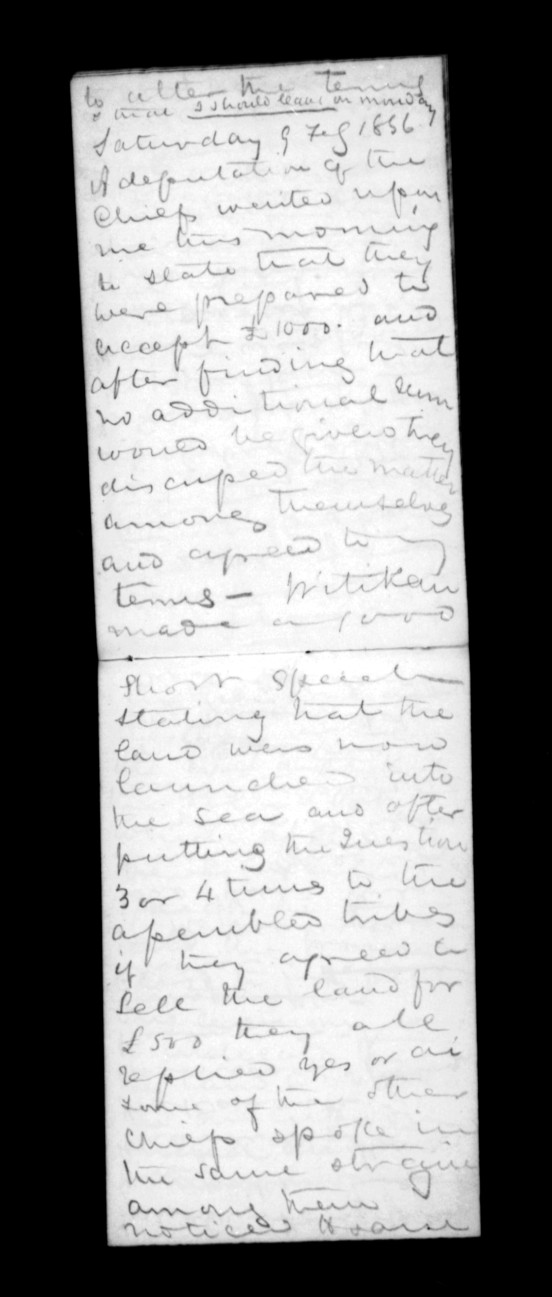 to alter the terms
& that I should leave on monday
Saturday 9 Feb 1856.
A deputation of the
Chiefs waited upon
me this morning
to state that they
were prepared to
accept £1000. and
after finding that
no additional sum
would be given they
discussed the matter
among themselves
and agreed to my
terms - Witikau
made a good
short speech
stating that the
land was now
launched into
the sea and after
putting the Question
3 or 4 times to the
assembled tribes
if they agreed to
sell the land for
£500 they all
replied yes or ai
some of the other
chiefs spoke in
the same strain
among them
noticed